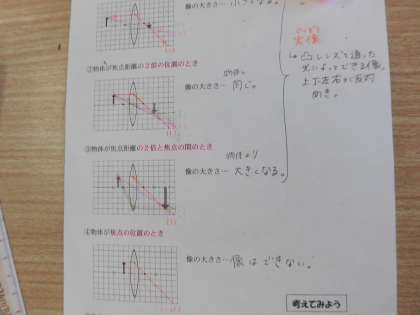 像の大きさ… 小さくなる。
②物体が焦点距離の2倍の位置のとき
物体と
像の大きさ… 同じ。
③物体が焦点距離の2倍と焦点の間のとき
物体より
像の大きさ… 大きくなる。
④物体が焦点の位置のとき
像の大きさ… 像はできない。
実像
↳凸レンズを通った
光によってできる像。
上下左右が反対
向き。
考えてみよう